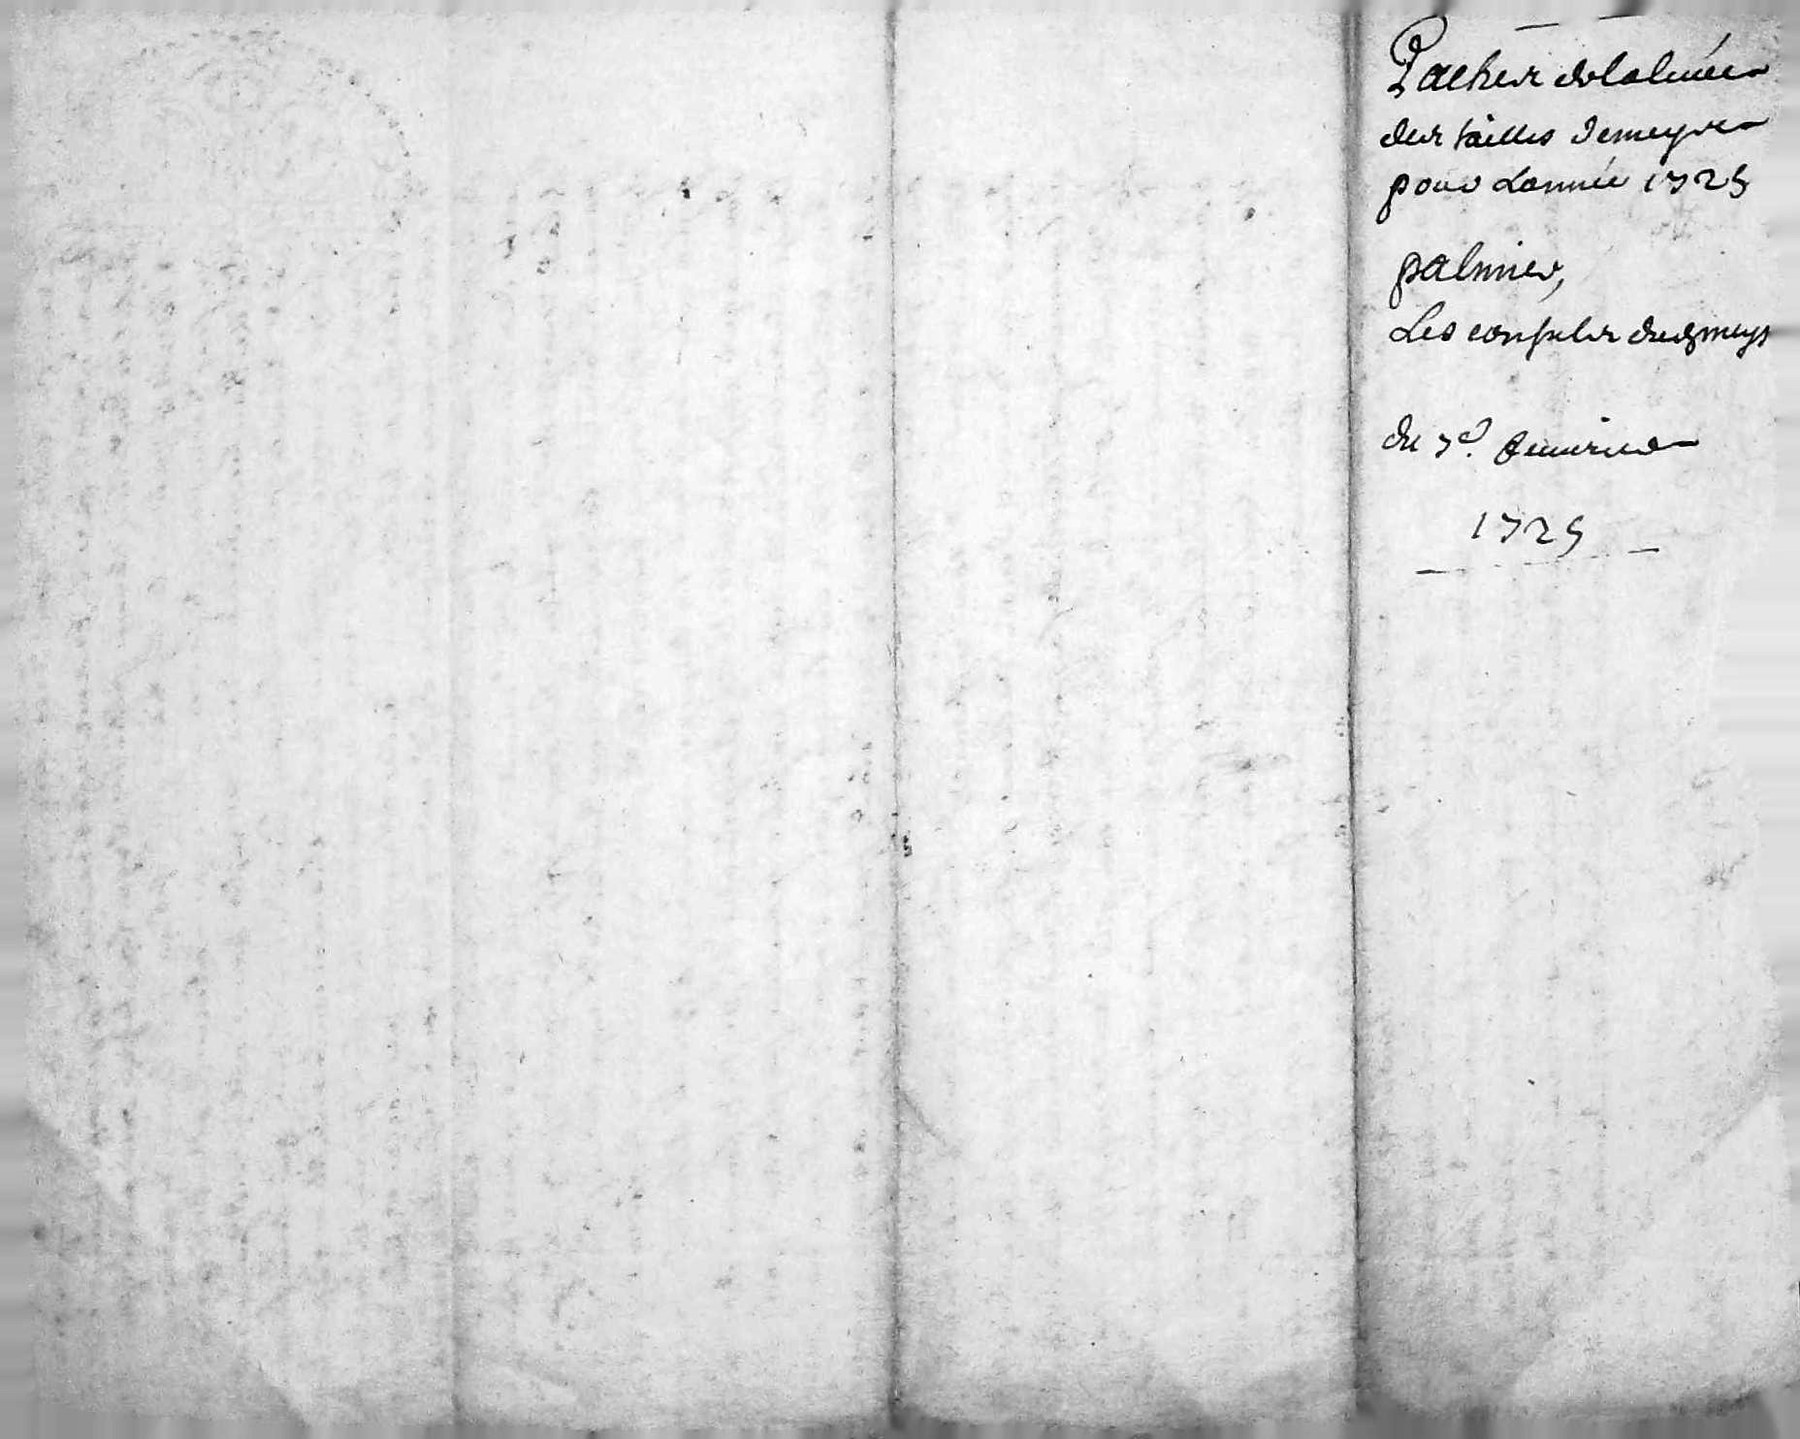 Paches de la levée
des tailles de meyres
pour L'année 1725
palmier,
Les consuls de meyres
du 7e. feuvrier
1725